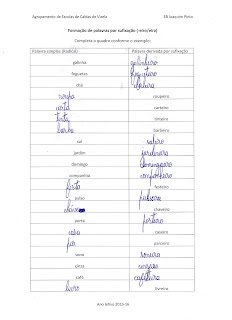 Agrupamento de Escolas de Caldas de Vizela EB Joaquim Pinto
Formação de palavras por sufixação (-eiro/eira)
Completa o quadro conforme o exemplo:
Palavra simples (Radical) Palavra derivada por sufixação
galinha galinheiro
foguetes fogueteiro
chá chaleira
roupa roupeiro
carta carteiro
tinta tinteiro
barba barbeiro
sal saleiro
jardim jardineiro
domingo domingueiro
companhia companheiro
festa festeiro
peixe
chave chaveiro
porta porteiro
caseiro
par parceiro
sono soneira
cinza cinzeiro
café cafeteira
livro livreiro
Ano letivo 2015-16